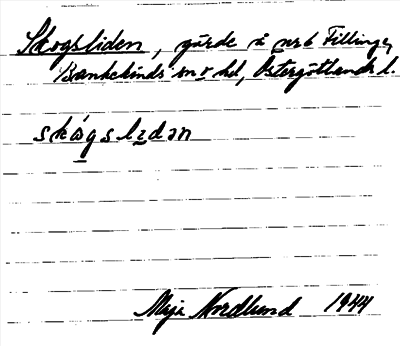 Skogsliden, gärde å nr 6 Fillinge,
Bankekinds sn o hd, Östergötlands l.
skógslədən
Maja Nordlund 1944